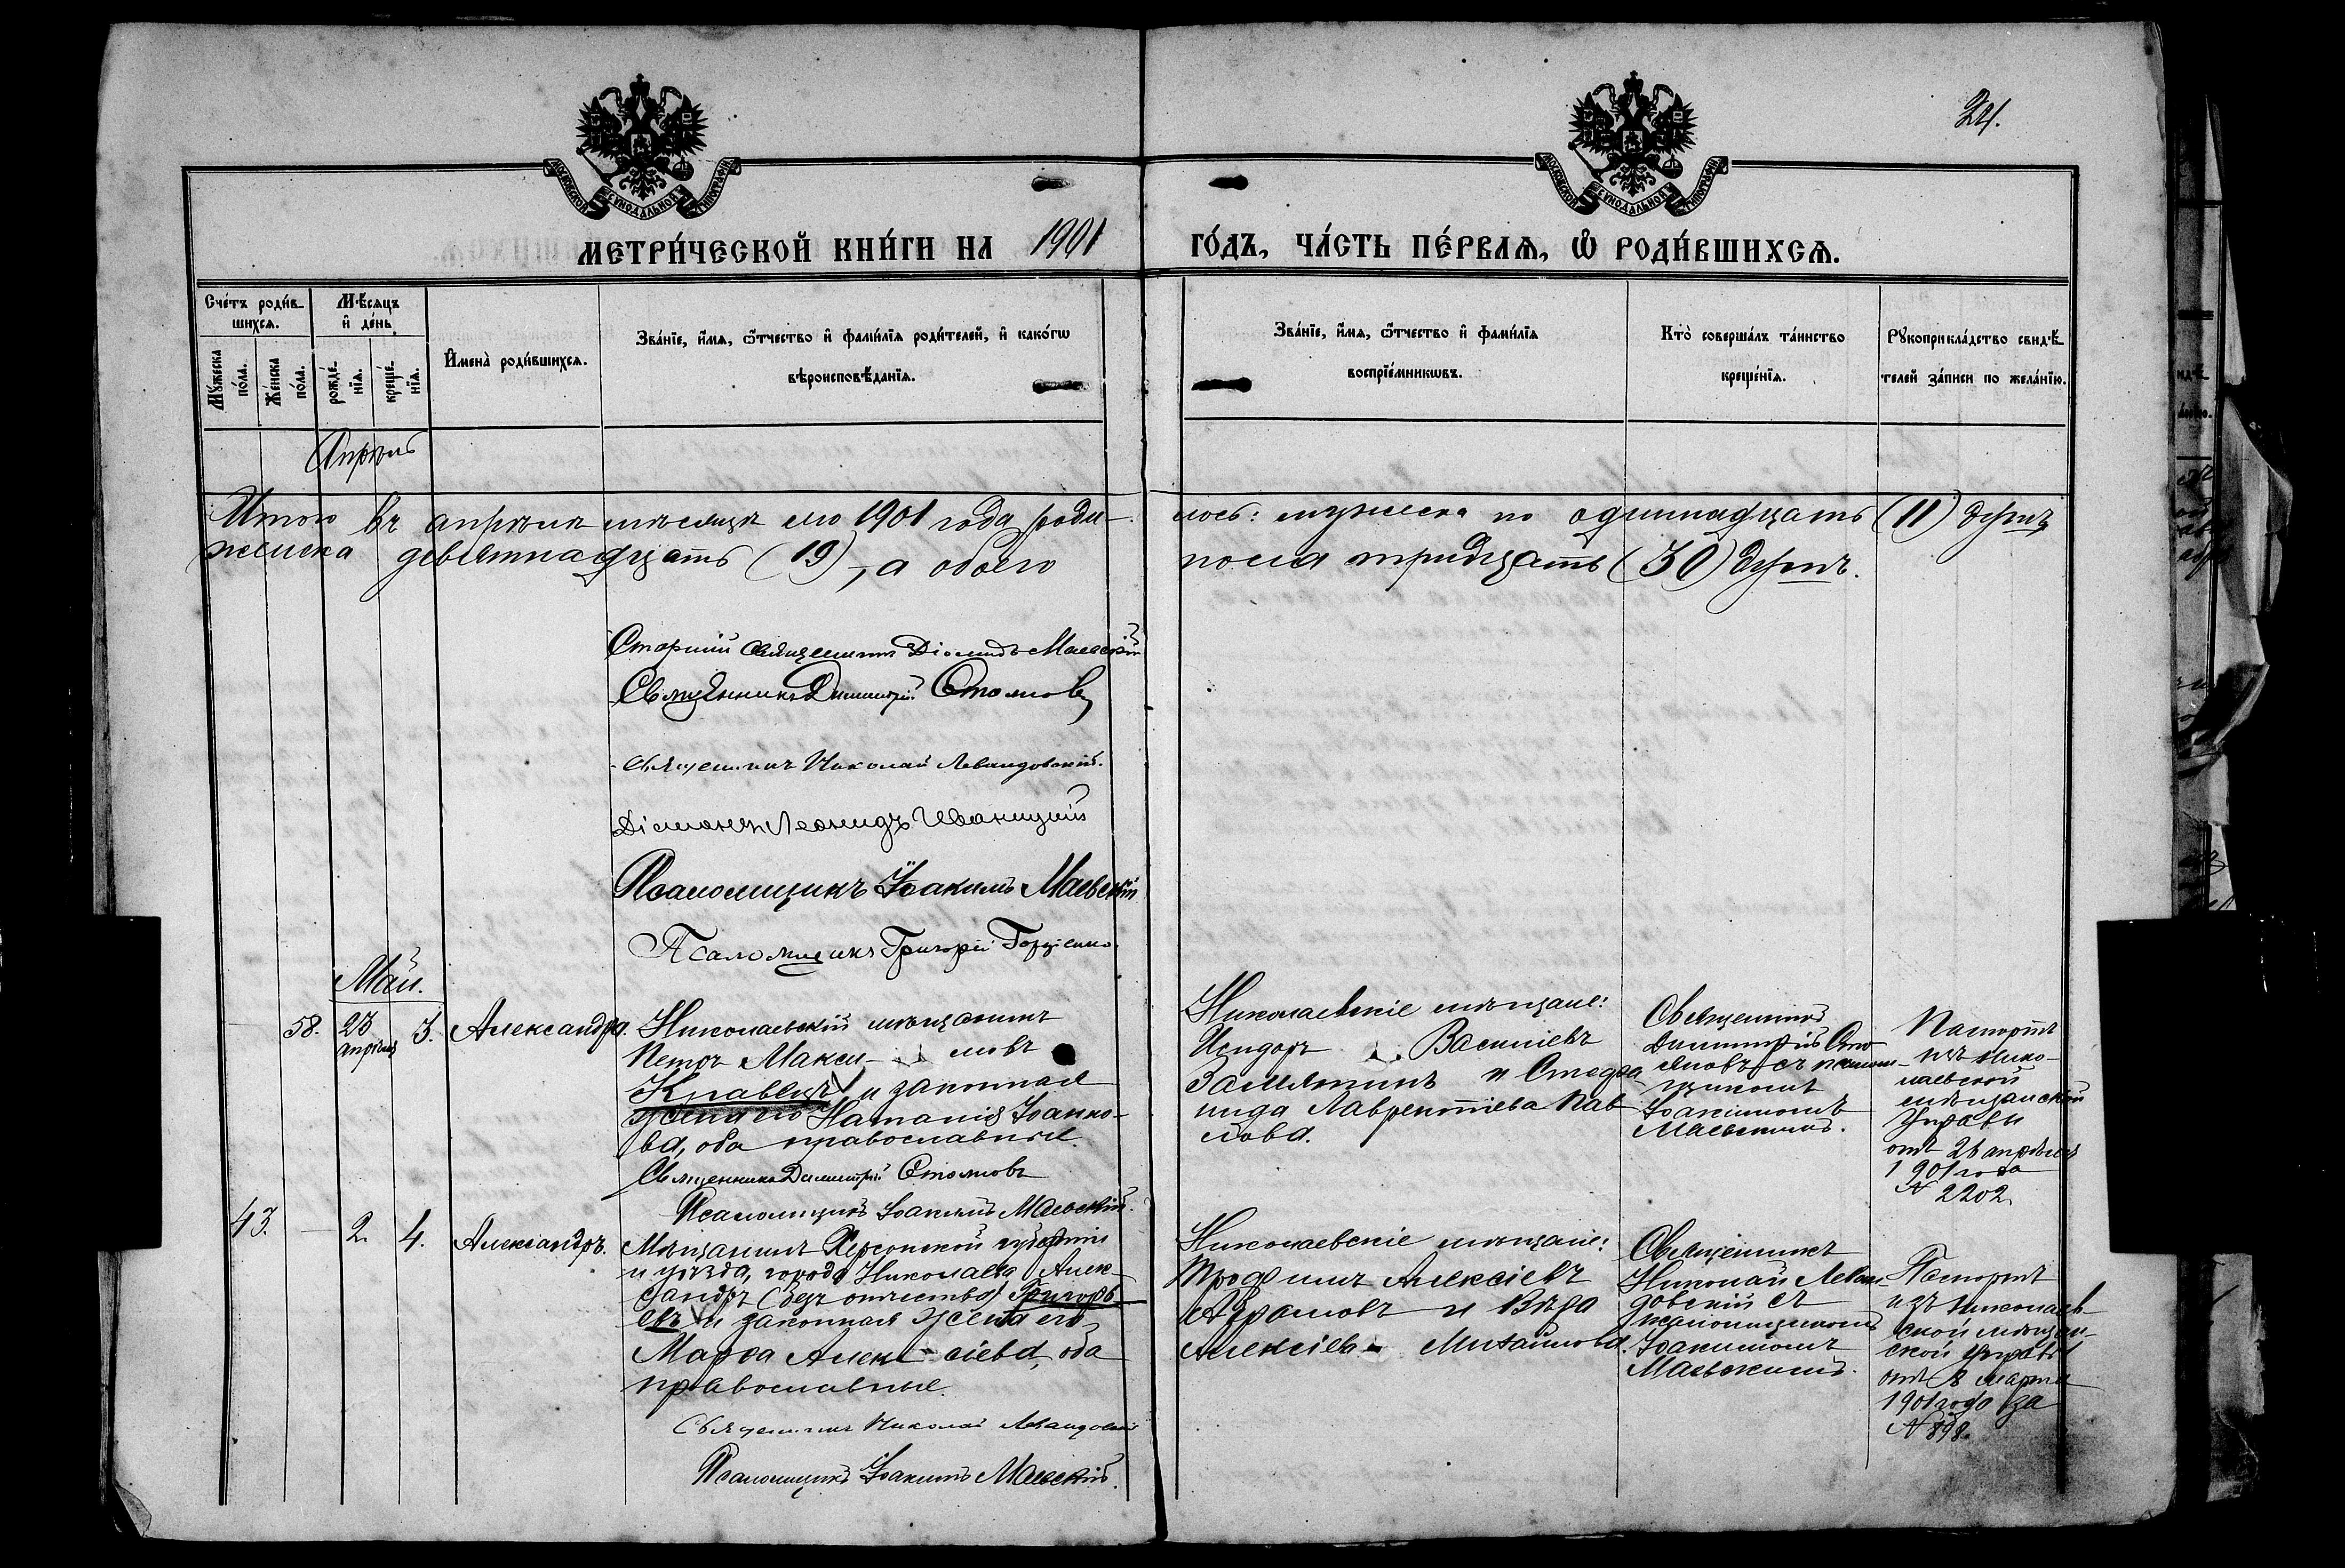 24.
МОСКОВСКОЙ СѴНОДАЛЬНОЙ ТИПОГРАФІИ
МОСКОВСКОЙ СѴНОДАЛЬНОЙ ТИПОГРАФІИ
МЕТРИ́ЧЕСКОЙ КНИ́ГИ НА 1901 ГО́ДЪ, ЧА́СТЬ ПЕ́РВАѦ, Ѡ҆ РОДИ́ВШИХСѦ.
Сче́тъ роди́в-
шихсѧ.
Мꙋ́жеска
по́ла.
Же́нска
по́ла.
Мѣ́сѧцъ
и҆ де́нь
рожде́-
нїѧ.
креще́-
нїѧ.
И҆мена̀ роди́вшихсѧ.
Зва́нїе, и҆́мѧ, ѻ҆́тчество и҆ фамі́лїѧ роди́телей, и҆ како́гѡ
вѣроисповѣ́данїѧ.
Зва́нїе, и҆́мѧ, ѻ҆́тчество и҆ фамі́лїѧ
воспрїе́мникѡвъ.
Кто̀ соверша́лъ та́инство
креще́нїѧ.
Рꙋкоприкла́дство свидѣ́-
телей за́писи по жела́нїю.
Апрѣль
Итого въ апрѣлѣ мѣсяцѣ сего 1901 года роди-
лось: мужеска по одиннадцать (11) душъ
женска девятнадцать (19), а обоего
пола тридцать (30) душъ.
Старшій священникъ Діомидъ Маевскій
Священникъ Димитрій Стоянов
Священникъ Николай Левандовскій.
Діаконъ Леонидъ Иваницкій
Псаломщикъ Іоакимъ Маевскій
Псаломщикъ Григорій
Май.
58.
23
апрѣля
3.
Александра.
Николаевскій мѣщанинъ
Петръ Макси- мовъ
Кравецъ и законная
жена его Наталія Іоанно-
ва, оба православные.
Священникъ Димитрій Стояновъ
Псаломщикъ Іоакимъ Маевскій.
Николаевскіе мѣщане:
Исидоръ Василіевъ
Замятинъ и Степа-
нида Лаврентіева Пав-
лова.
Священникъ
Димитрій Сто-
яновъ съ псалом-
щикомъ
Іоакимомъ
Маевскимъ.
Паспортъ
изъ Нико-
лаевской
мѣщанской
Управы
отъ 26 апрѣля
1901 года
№ 2202.
43.
-
2.
4.
Александръ.
Мѣщанинъ Херсонской губерніи
и уѣзда, города Николаева Алек-
сандръ (безъ отчества) Григорь-
евъ и законная жена его
Марѳа Алек- сіева, оба
православные.
Священникъ Николай Левандовскій
Псаломщикъ Іоакимъ Маевскій.
Николаевскіе мѣщане:
Трофимъ Алексіевъ
Абрамовъ и Вѣра
Алексіева Михайлова.
Священникъ
Николай Леван-
довскій съ
псаломщикомъ
Іоакимомъ
Маевскимъ.
Паспортъ
изъ Николаев-
ской мѣщан-
ской Управы
отъ 8 марта
1901 года за
№ 898.